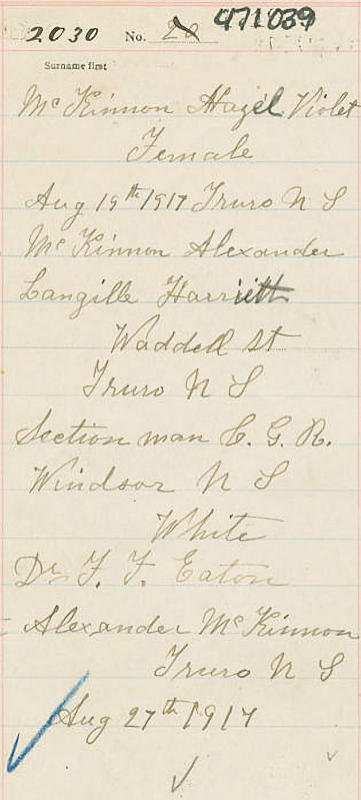 2030 No. 20 471039
Surname first
McKinnon Hazel Violet
Female
Aug 19th 1917 Truro N S
McKinnon Alexander
Langille Harriett
Waddell St
Truro N S
Section man C. G. R.
Windsor N S
White
Dr F. F. Eaton
Alexander McKinnon
Truro N S
Aug 27th 1917